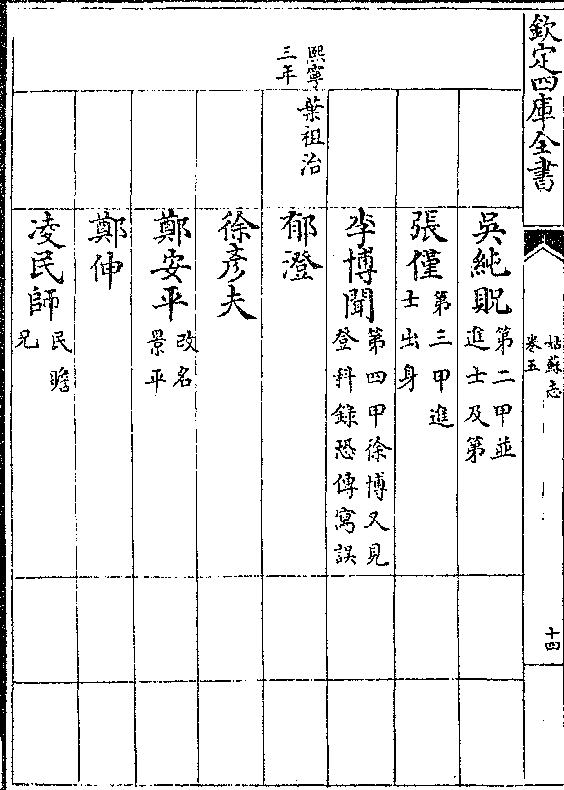 欽定四庫全書
姑蘇志
卷五
十四
吳純貺第二甲並
進士及第
張僅第三甲進
士出身
李博聞第四甲徐博又見
登科録恐傳寫誤
熙寧
三年
葉祖洽
郁澄
徐彥夫
鄭安平改名
景平
鄭伸
凌民師民瞻
兄